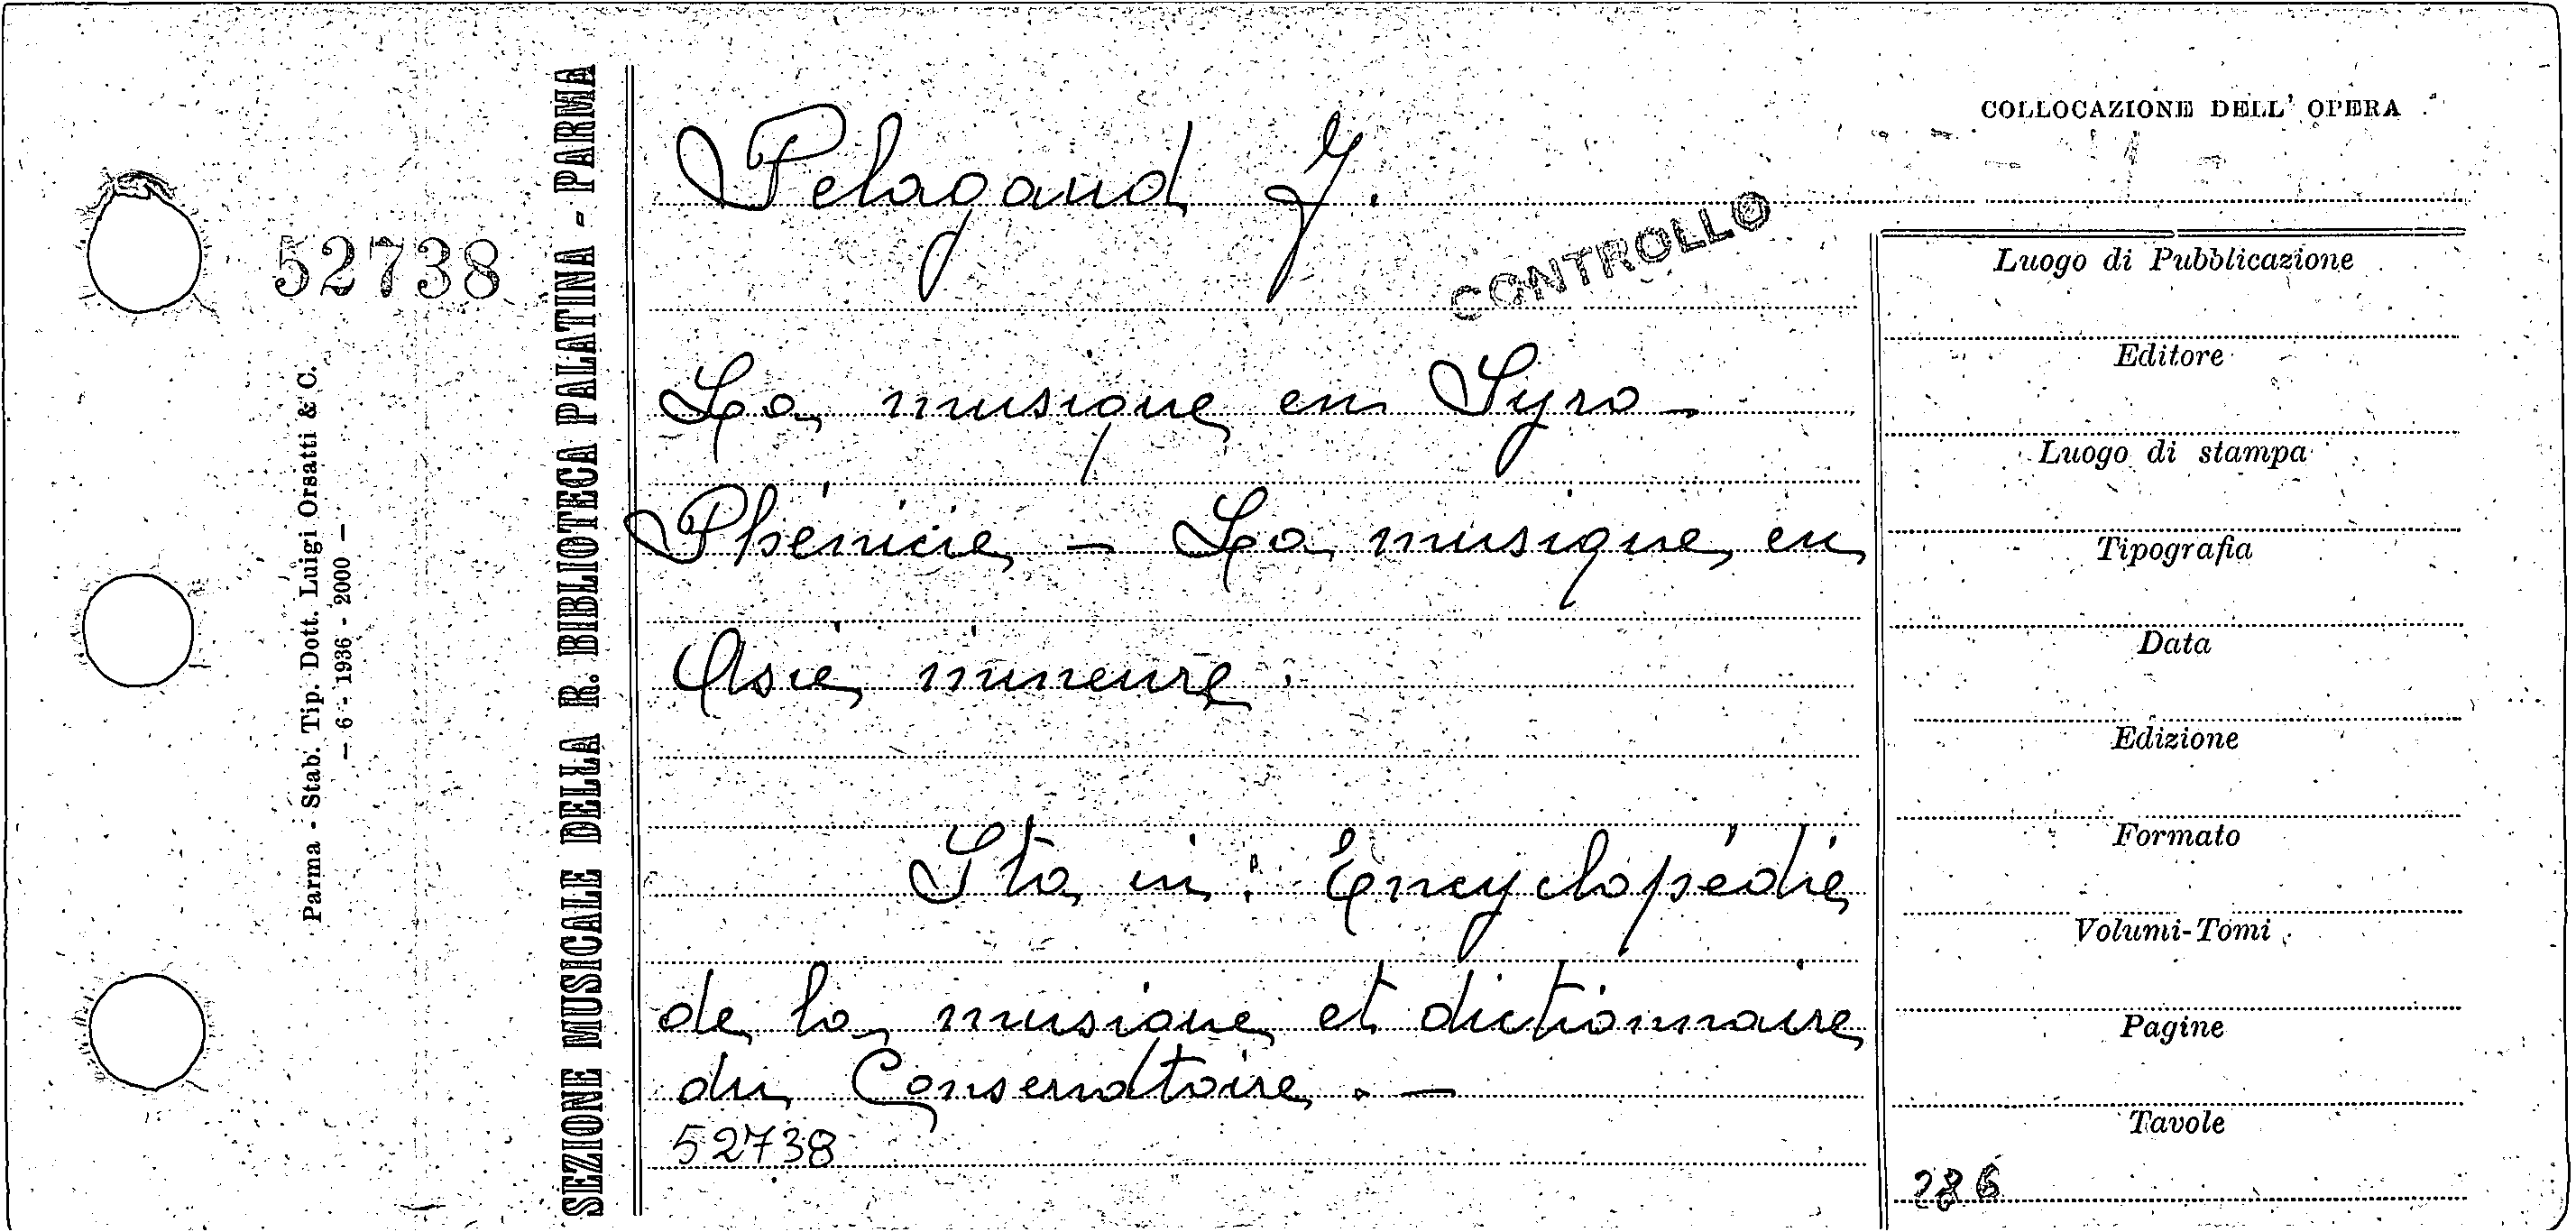 COLLOCAZIONE DELL' OPERA
Pelagaud F.
CONTROLLO
52738
La musique en Syro-
Phénicie - La musique en
Asie mineure.
Sta in: Encyclopédie
de la musique et dictionnaire
du Conservatoire. -
52738
Luogo di Pubblicazione
Editore
Luogo di stampa
Tipografia
Data
Edizione
Formato
Volumi-Tomi
Pagine
Tavole
286
SEZIONE MUSICALE DELLA R. BIBLIOTECA PALATINA - PARMA
Parma - Stab. Tip. Dott. Luigi Orsatti & C.
- 6 - 1936 - 2000 -